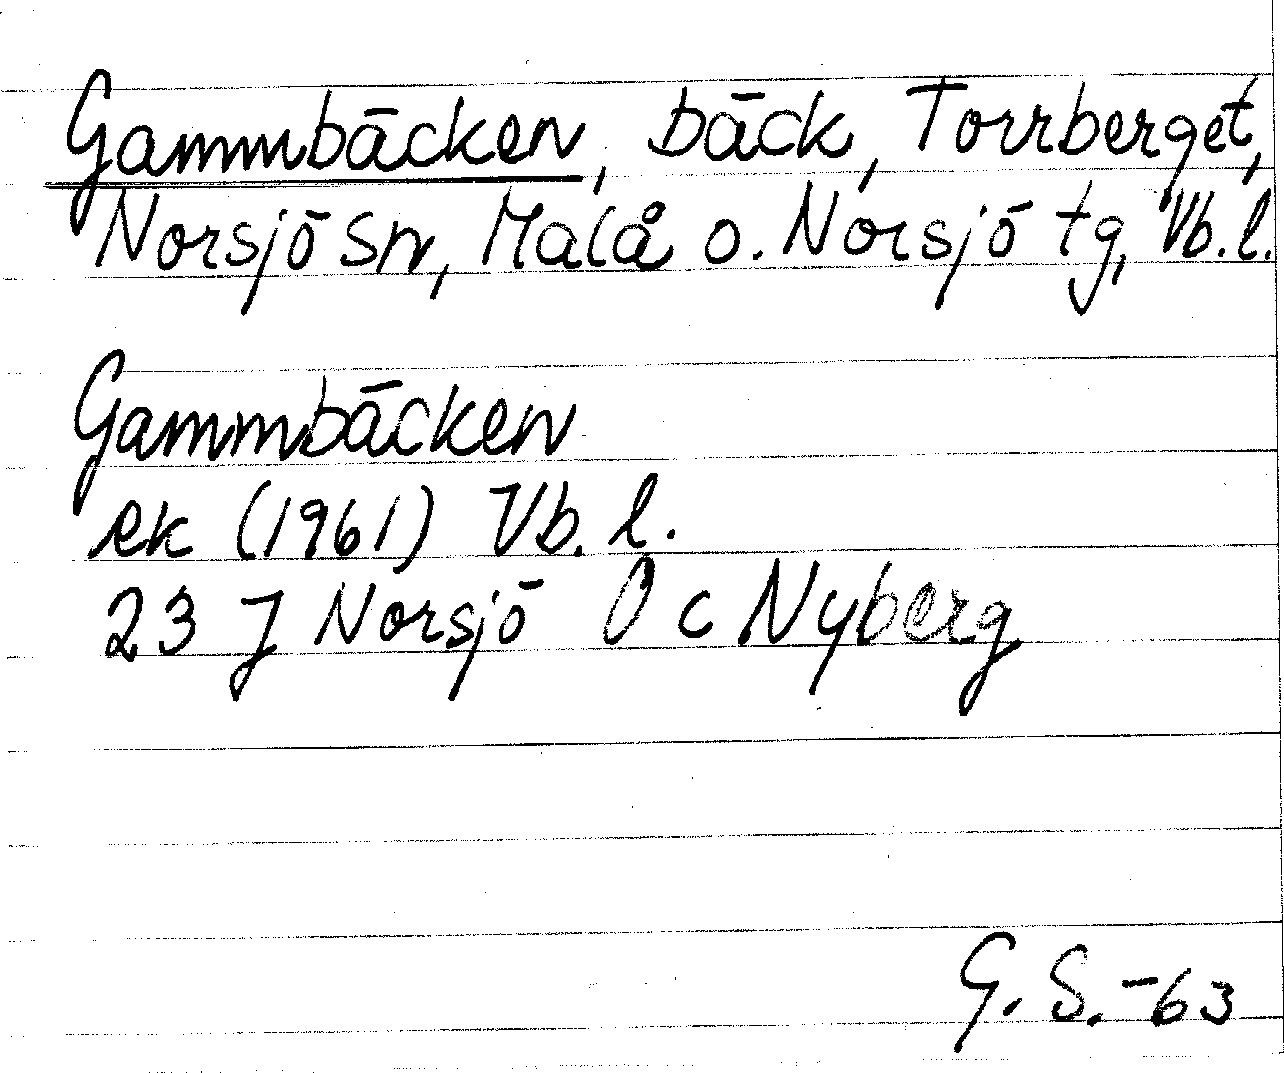 Gammbäcken, bäck, Torrberget,
Norsjö sn, Malå o. Norsjö tg, Vb. l.
Gammbäcken
ek (1961) Vb. l.
23 J Norsjö O c Nyberg
G. S. -63